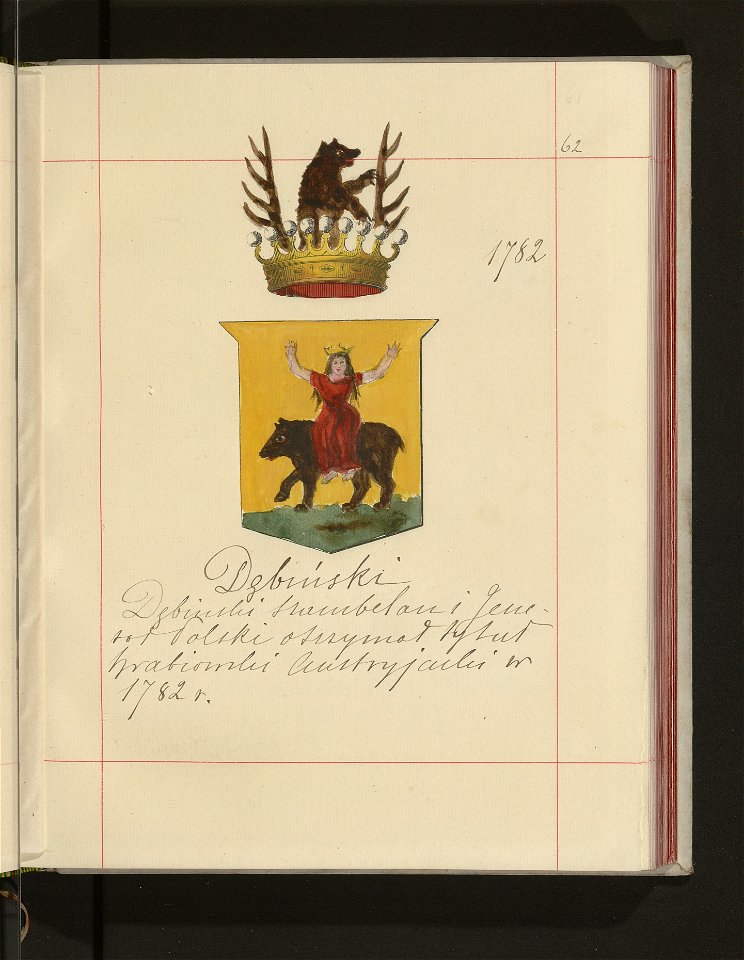 62
1782
Dębiński
Dębiński szambelan i Jene-
rał Polski otrzymał tytuł
hrabiowski Austryjacki w
1782 r.